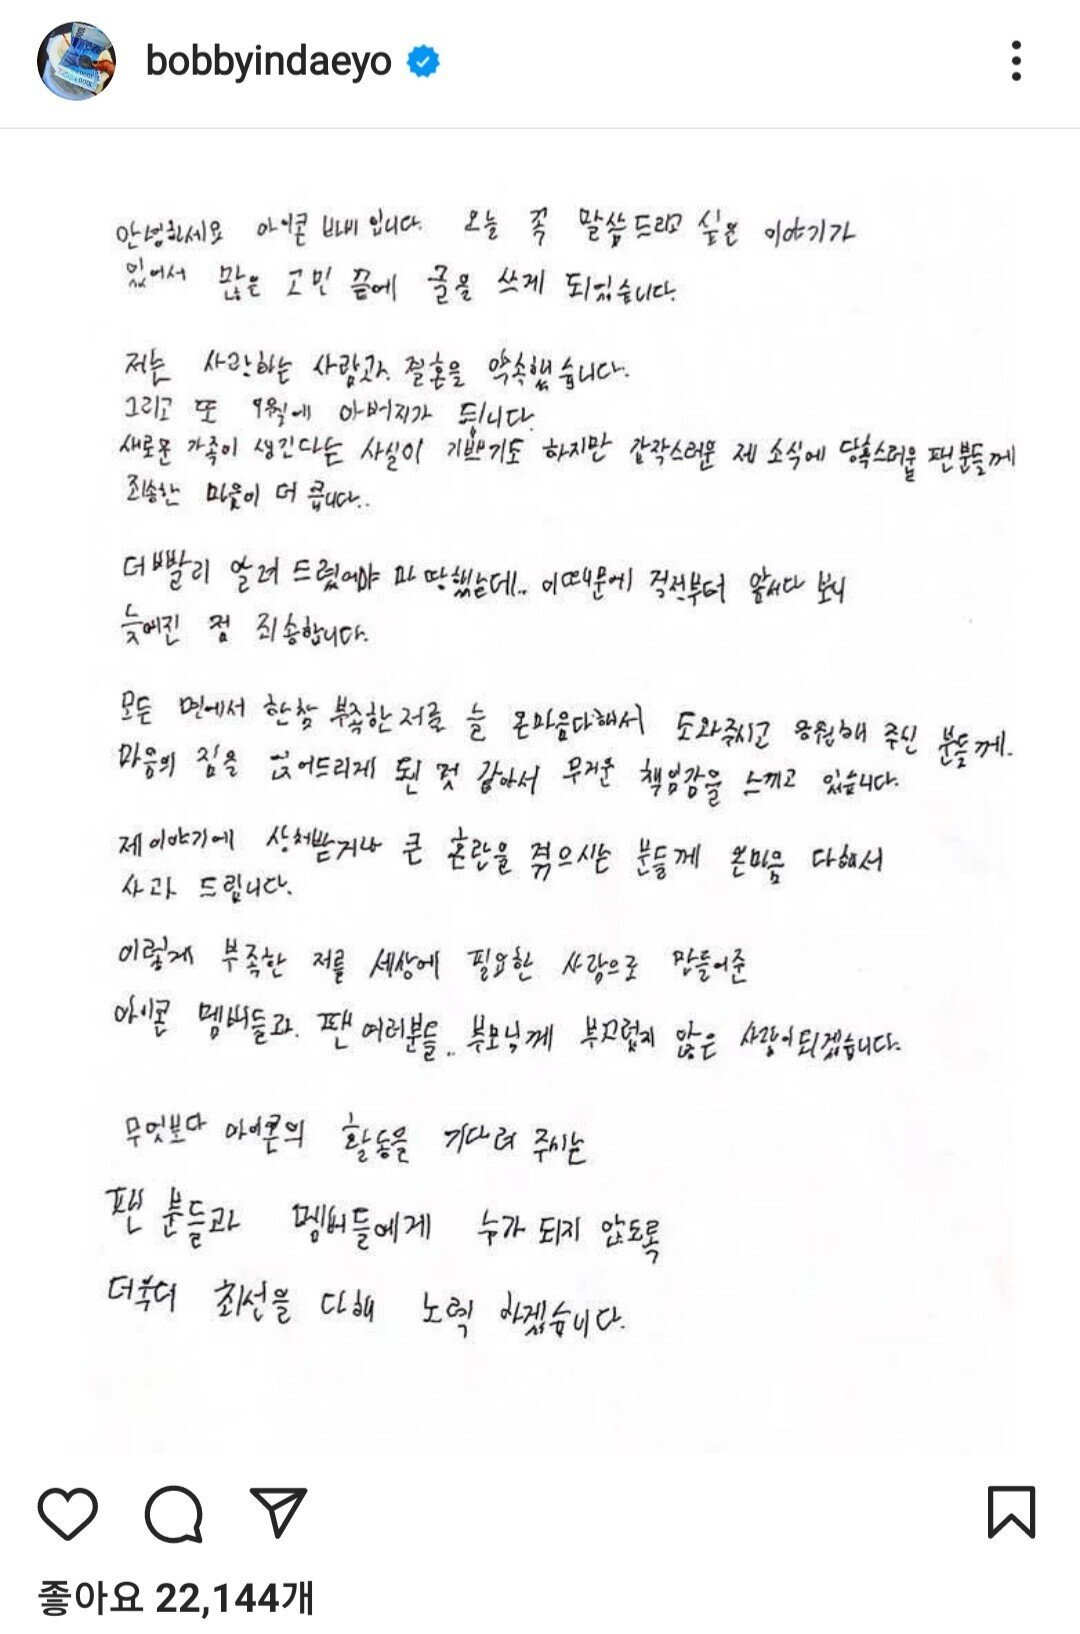 bobbyindaeyo
안녕하세요 아이콘 바비입니다. 오늘 꼭 말씀드리고 싶은 이야기가
있어서 많은 고민 끝에 글을 쓰게 되었습니다.
저는 사랑하는 사람과 결혼을 약속했습니다.
그리고 또 9월에 아버지가 됩니다
새로운 가족이 생긴다는 사실이 기쁘기도 하지만 갑작스러운 제 소식에 당혹스러울 팬분들께
죄송한 마음이 더 큽니다..
더 빨리 알려 드렸어야 마땅했는데.. 이때문에 걱정부터 앞서다 보니
늦어진 점 죄송합니다.
모든 면에서 한참 부족한 저를 늘 온마음다해서 도와주시고 응원해 주신 분들께.
마음의 짐을 얹어드리게 된 것 같아서 무거운 책임감을 느끼고 있습니다.
제 이야기에 상처받거나 큰 혼란을 겪으시는 분들께 온마음 다해서
사과 드립니다.
이렇게 부족한 저를 세상에 필요한 사람으로 만들어준
아이콘 멤버들과. 팬 여러분들.. 부모님께 부끄럽지 않은 사람이 되겠습니다.
무엇보다 아이콘의 활동을 기다려 주시는
팬 분들과 멤버들에게 누가 되지 않도록
더욱더 최선을 다해 노력 하겠습니다.
좋아요 22,144개